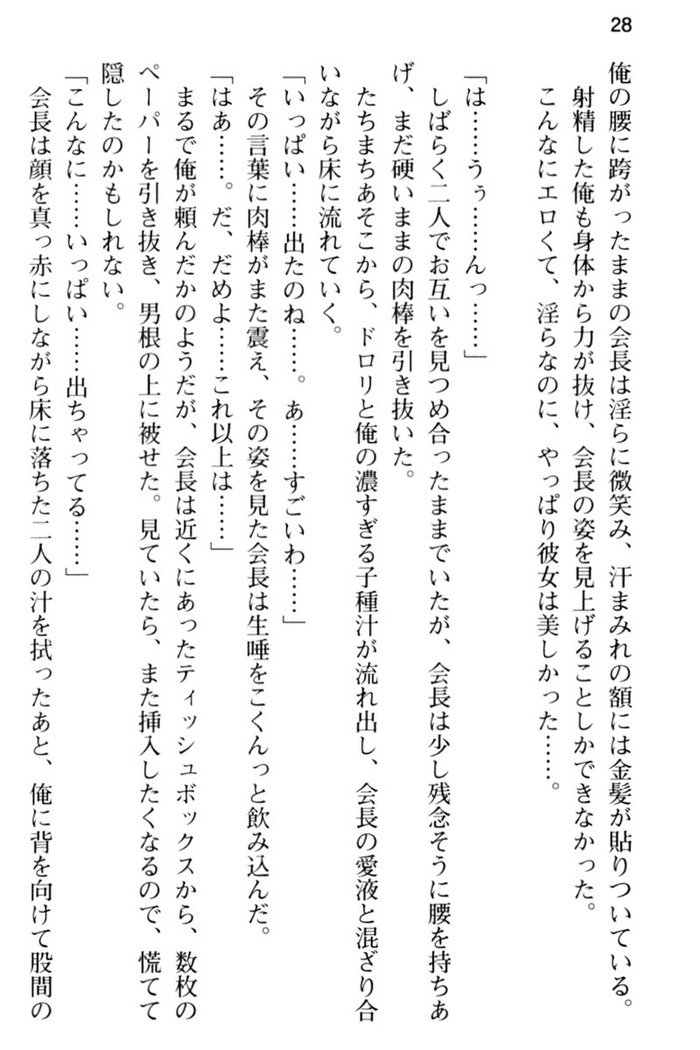 28
俺の腰に跨がったままの会長は淫らに微笑み、汗まみれの額には金髪が貼りついている。
射精した俺も身体から力が抜け、会長の姿を見上げることしかできなかった。
こんなにエロくて、淫らなのに、やっぱり彼女は美しかった……。
「は……うぅ……んっ……」
しばらく二人でお互いを見つめ合ったままでいたが、会長は少し残念そうに腰を持ちあ
げ、まだ硬いままの肉棒を引き抜いた。
たちまちあそこから、ドロリと俺の濃すぎる子種汁が流れ出し、会長の愛液と混ざり合
いながら床に流れていく。
「いっぱい……出たのね……。あ……すごいわ……」
その言葉に肉棒がまた震え、その姿を見た会長は生唾をこくんっと飲み込んだ。
「はぁ……。だ、だめよ……これ以上は……」
まるで俺が頼んだかのようだが、会長は近くにあったティッシュボックスから、数枚の
ペーパーを引き抜き、男根の上に被せた。見ていたら、また挿入したくなるので、慌てて
隠したのかもしれない。
「こんなに……いっぱい……出ちゃってる……」
会長は顔を真っ赤にしながら床に落ちた二人の汁を拭ったあと、俺に背を向けて股間の